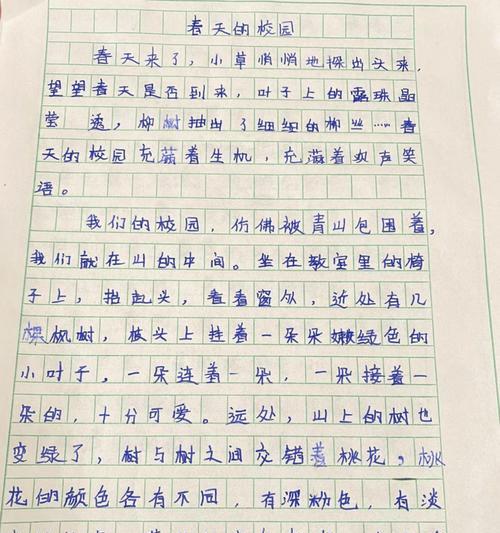 春天的校园
春天来了，小草悄悄地探出头来，
望望春天是否到来，叶子上的露珠晶
莹透，柳树抽出了细细的柳丝……春
天的校园充满着生机，充满着欢声笑
语。
我们的校园，仿佛被青山包围着，
我们就在山的中间。坐在教室里的椅
子上，抬起头，看看窗外，近处有几
棵枫树，枝头上挂着一朵朵嫩绿色的
小叶子，一朵连着一朵，一朵接着一
朵的，十分可爱。远处，山上的树也
变绿了，树与树之间交错着桃花，桃
花的颜色各有不同，有深粉色，有淡